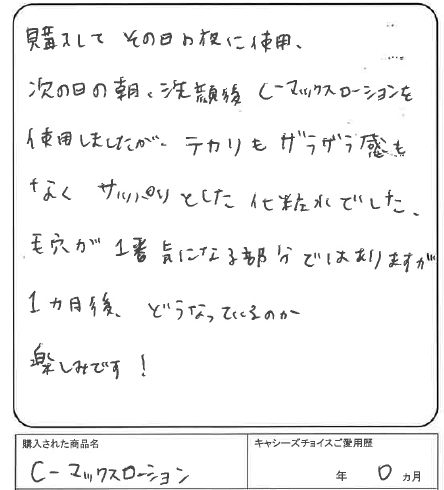 購入して その日の夜に使用、
次の日の朝、洗顔後 C-マックスローションを
使用しましたが、テカリも ザラザラ感も
なく サッパリとした 化粧水でした、
毛穴が 1番気になる部分ではありますが
1カ月後、どうなっているのか
楽しみです！
購入された商品名
キャシーズチョイスご愛用歴
C-マックスローション
年 0 ヵ月